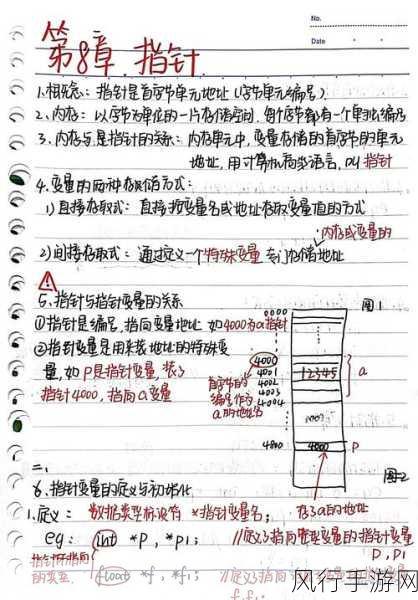 No.
Date
第8章 指针
1.相关概念：指针是首字节单元地址(字节单元编号).
2、内存：以字节为单位的一片存储空间，每个字节都有一个单独编号
3、内存与指针的关系：内存单元中，变量存储的首字节的单元
地址，用计算机语言，叫指针
4、变量的两种存储方式：
1)直接存取式：直接按变量名或地址存取变量值的方式
内存或变量的
2)间接存取式：通过定义一个特殊变量专门存储地址
5、指针与指针变量的关系
图1
0000
①指针是编号，指向变量地址 如4000为a指针
②指针变量是用来装地址的特殊变
量，如P是指针变量，装了
指针4000，指向a变量
4000
4001
4002
4003
4004
12345
a
首字节的
编号作为
a的地址名
4800
4000
P
二、
6、指针变量的定义与初始化
图2
存了a的地址
1.定义：数据类型标识符 *指针变量名；
eg: int *P, *P1; //定义了指向整型变量的指针变量
P, P1
指针所指向
的类型
float *f, *f1; //定义了指向
f, f1
风行手游网